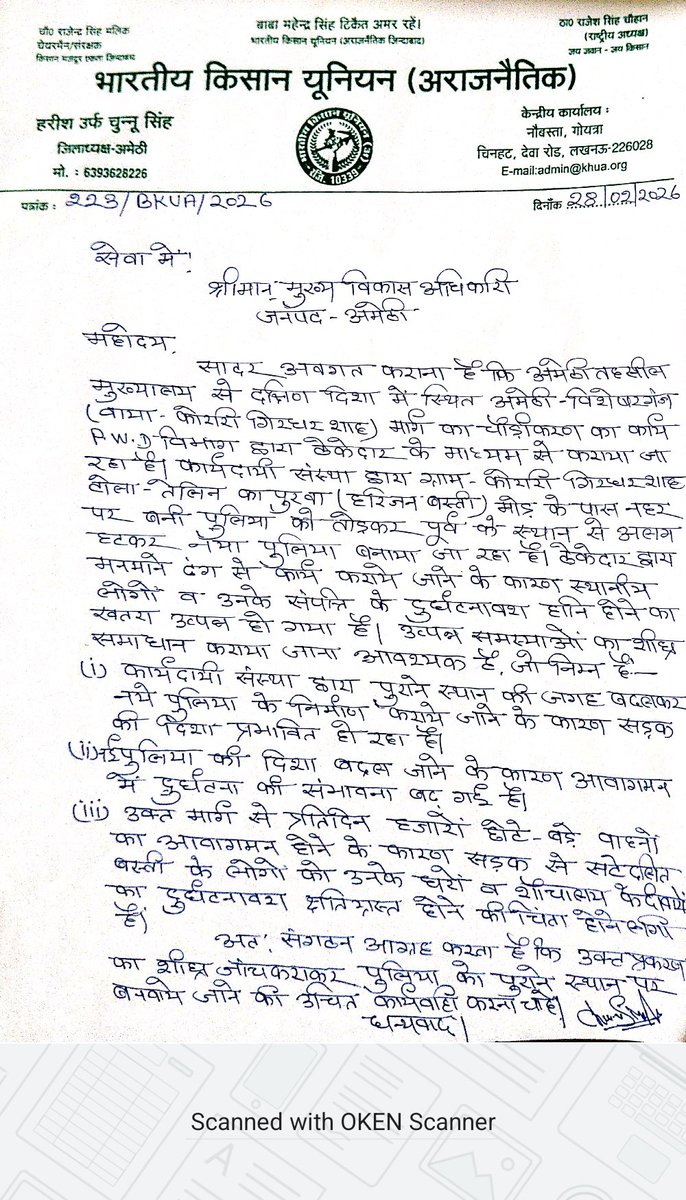 चौ० राजेन्द्र सिंह मलिक
चेयरमैन/संरक्षक
किसान मजदूर एकता जिन्दाबाद
बाबा महेन्द्र सिंह टिकैत अमर रहें।
भारतीय किसान यूनियन (अराजनैतिक जिन्दाबाद)
ठा० राजेश सिंह चौहान
(राष्ट्रीय अध्यक्ष)
जय जवान - जय किसान
भारतीय किसान यूनियन (अराजनैतिक)
हरीश उर्फ चुन्नू सिंह
जिलाध्यक्ष-अमेठी
मो. : 6393628226
भारतीय किसान यूनियन (अ)
रजि. 10339
केन्द्रीय कार्यालय :
नौबस्ता, गोयत्रा
चिनहट, देवा रोड, लखनऊ-226028
E-mail:admin@khua.org
पत्रांक : 223/BKUA/2026
दिनाँक 28/02/2026
सेवा में,
श्रीमान् मुख्य विकास अधिकारी
जनपद - अमेठी
महोदय,
सादर अवगत कराना है कि अमेठी तहसील
मुख्यालय से दक्षिण दिशा में स्थित अमेठी-विशेषरगंज
(वाया- कोरारी गिरधर शाह) मार्ग का चौड़ीकरण का कार्य
P.W.D विभाग द्वारा ठेकेदार के माध्यम से कराया जा
रहा है। कार्यदायी संस्था द्वारा ग्राम- कोरारी गिरधर शाह
टोला- तेलिन का पुरवा (हरिजन बस्ती) मोड़ के पास नहर
पर बनी पुलिया को तोड़कर पूर्व के स्थान से अलग
हटकर नया पुलिया बनाया जा रहा है। ठेकेदार द्वारा
मनमाने ढंग से कार्य कराये जाने के कारण स्थानीय
लोगों व उनके संपत्ति के दुर्घटनावश हानि होने का
खतरा उत्पन्न हो गया है। उत्पन्न समस्याओं का शीघ्र
समाधान कराया जाना आवश्यक है, जो निम्न है:-
(i) कार्यदायी संस्था द्वारा पुराने स्थान की जगह बदलकर
नये पुलिया के निर्माण कराये जाने के कारण सड़क
की दिशा प्रभावित हो रहा है।
(ii) नई पुलिया की दिशा बदल जाने के कारण आवागमन
में दुर्घटना की संभावना बढ़ गई है।
(iii) उक्त मार्ग से प्रतिदिन हजारों छोटे-बड़े वाहनों
का आवागमन होने के कारण सड़क से सटे दलित
बस्ती के लोगों को उनके घरों व शौचालय के दीवारें
का दुर्घटनावश क्षतिग्रस्त होने की चिंता होने लगी
है।
अतः संगठन आग्रह करता है कि उक्त प्रकरण
का शीघ्र जांच कराकर पुलिया को पुराने स्थान पर
बनवाये जाने की उचित कार्यवाही करना चाहें।
धन्यवाद।
Scanned with OKEN Scanner